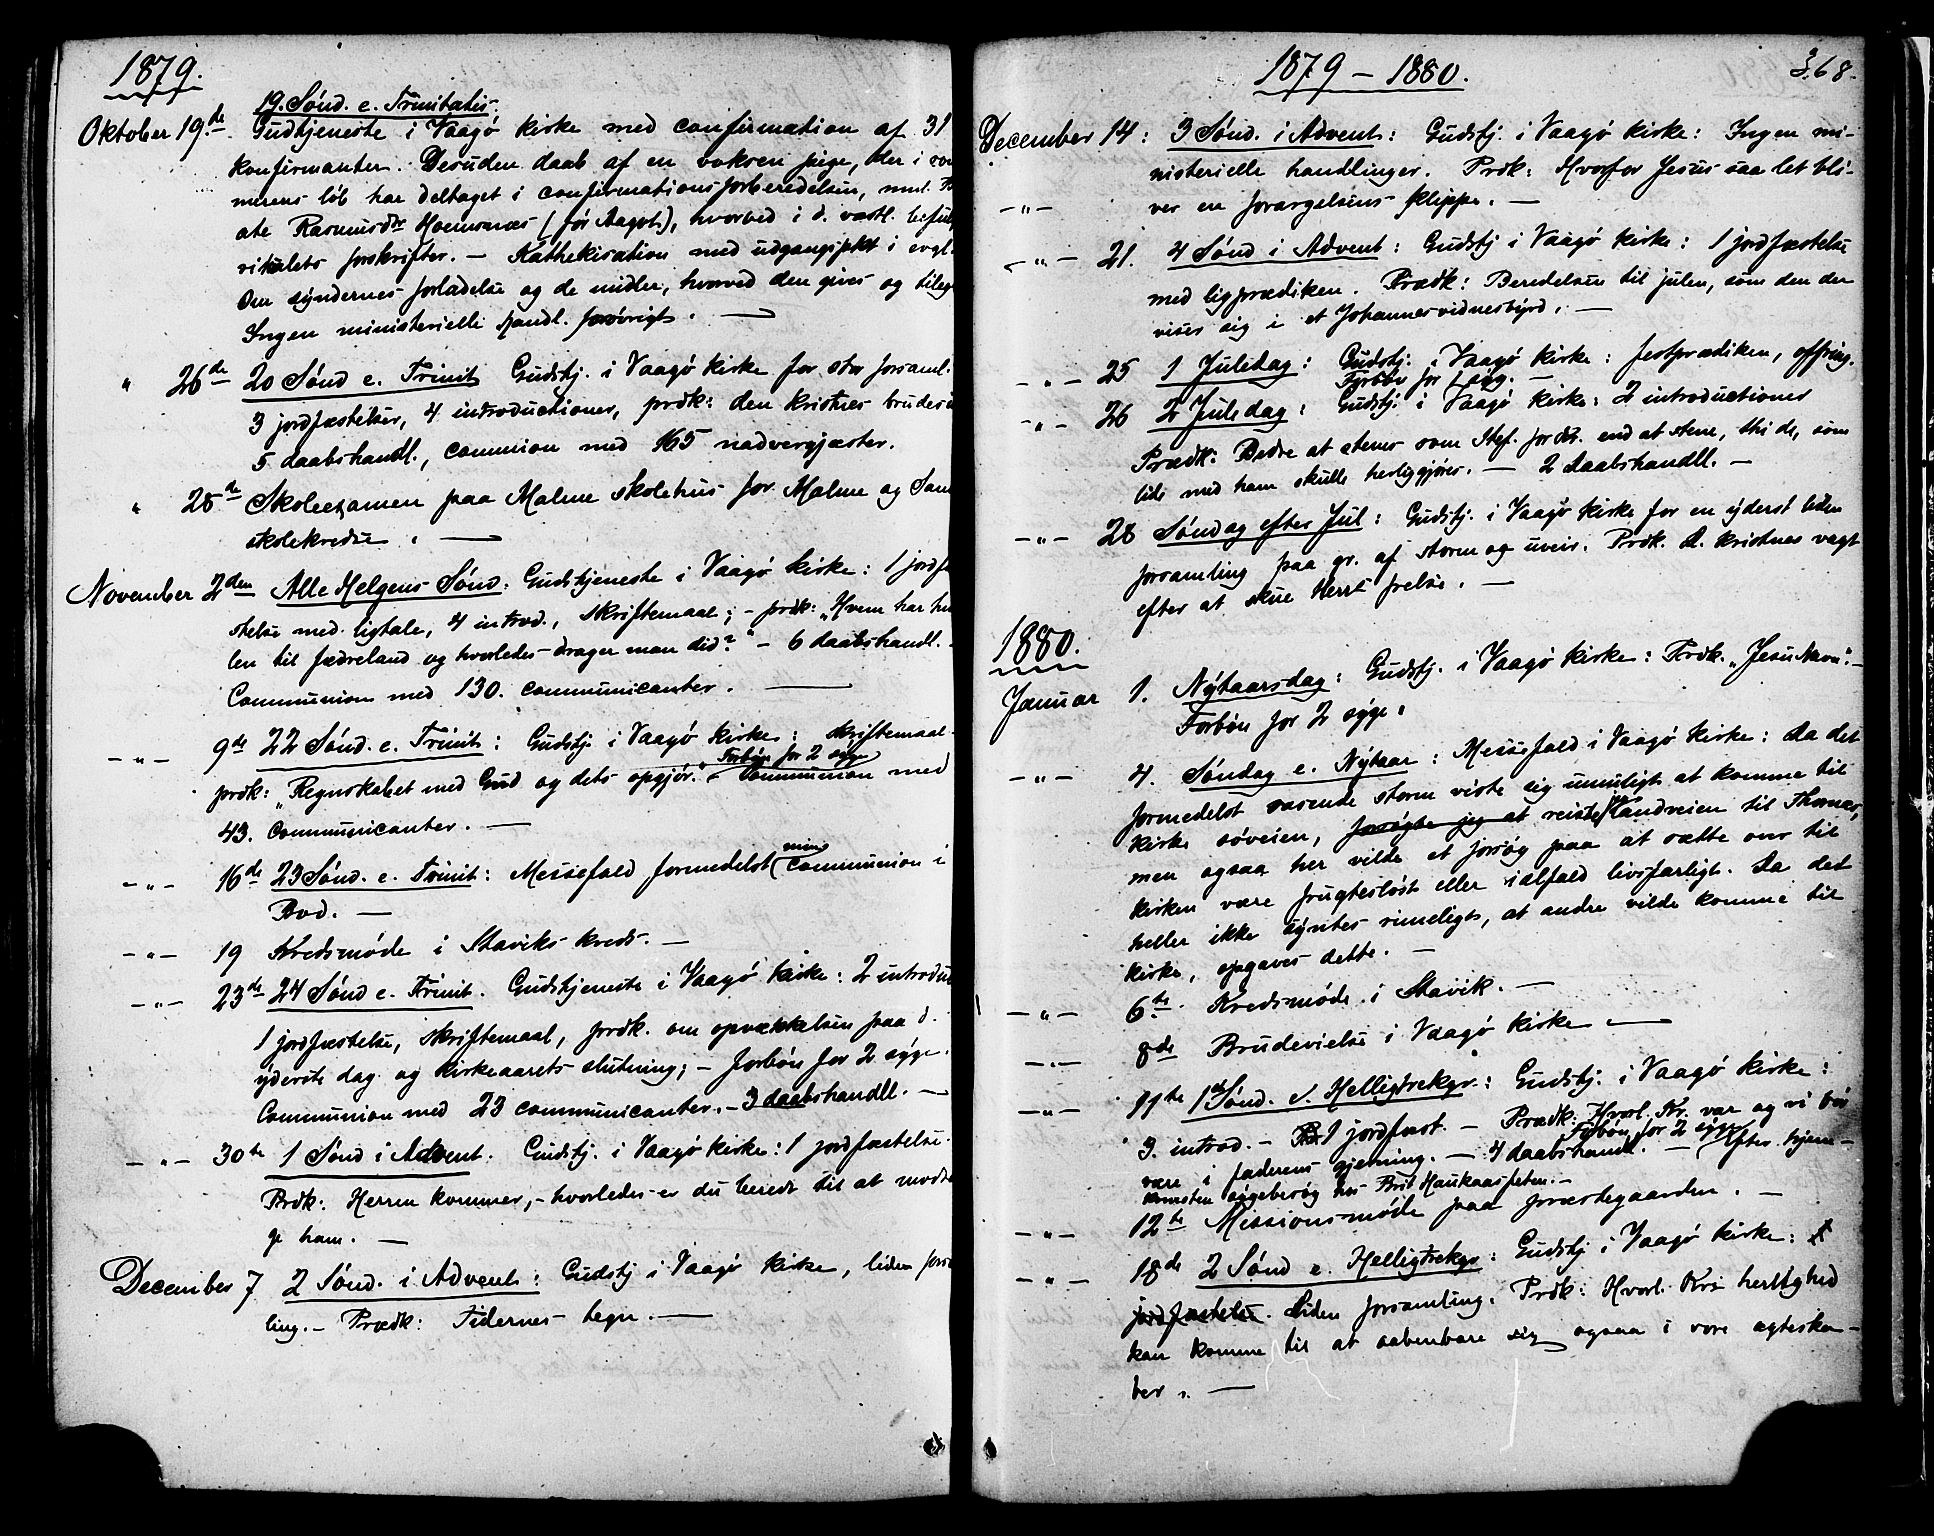 1879.
19. Sønd. e. Trinitatis.
Oktober 19.de Gudtjeneste i Vaagø kirke med confirmation af 31
konfirmanter. Desuden daab af en voksen pige, der i som
merens løb har deltaget i confirmationsforberedelsen, nml.
ate Rasmusdtr Hoemsnæs (før Aagot), hvorved i d. væstl. befulg
vitalets forskrifter. — Kathekisation med udgangspkt i evgl.
Om syndernes forladelse og de midler, hvorved den gives og tileg
Ingen ministerielle handl. forøvrigt. —
" 26de 20 Sønd e. Trinit Gudstj. i Vaagø kirke for stor forsaml.
3 jordfæstelser, 4 introductioner, prdk: den kristnes brudes
5 daabshandl., commion med 165 nadvergjæster.
" 28de Skoleexamen paa Malme skolehus for Malme og
skolekredse. —
November 2den Alle Helgens Sønd: Gudstjeneste i Vaagø kirke: 1 jordfæ
stelse med ligtale, 4 introd., skriftemaal; - prdk: „Hvem har him
len til fædreland og hvorledes drager man did?" - 6 daabshandl.
Communion med 130. communicanter. —
— " — 9de 22 Sønd. e. Trinit: Gudstj. i Vaagø kirke: skriftemaal.
prdk: „Regnskabet med Gud og dets opgjør." Forbøn for 2 syge Communion med
43. communicanter. —
— " — 16de 23 Sønd. e. Trinit: Messefald formedelst min communion i
Bod. —
— " — 19 Kredsmøde i Staviks kreds. —
— " — 23de 24 Sønd e. Trinit. Gudstjeneste i Vaagø kirke: 2 introdu
1 jordfæstelse, skriftemaal, prdk. om opvækkelsen paa d.
yderste dag og kirkeaarets slutning; - forbøn for 2 syge.
Communion med 23 communicanter. - 3 daabshandll. —
— " — 30te 1 Sønd i Advent. Gudstj. i Vaagø kirke: 1 jordfæstelse.
Prdk: Herren kommer, - hvorledes er du beredt til at modta
ge ham. —
December 7 2 Sønd. i Advent: Gudstj i Vaagø kirke, liden forsa
ling. - Prædk: Tidernes tegn. —
1879 — 1880.
368.
December 14: 3 Sønd. i Advent: Gudstj. i Vaagø kirke: Ingen mi-
nisterielle handlinger. Prdk: Hvorfor Jesus saa let bli-
— " — ver en forargelsens klippe. —
— " — 21. 4 Sønd i Advent: Gudstj i Vaagø kirke: 1 jordfæstelse
med ligprædiken. Prædk: Beredelsen til julen, som den der
viser sig i et Johannesvidnesbyrd. —
— " — 25 1 Juledag: Gudstj. i Vaagø kirke: festprædiken, offring.
Forbøn for 1 syg. —
— " — 26 2 Juledag: Gudstj. i Vaagø kirke: 2 introductioner
Prædk: Bedre at stenes som Stef. for det. end at stene, thi de, som
lide med ham skulle herliggjøres. — 2 daabshandll. —
— " — 28 Søndag efter Jul: Gudstj. i Vaagø kirke for en yderst liden
forsamling paa gr. af storm og uveir. Prdk. d. kristnes vagt
efter at skue Herrs frelse. —
1880.
Januar 1. Nytaarsdag: Gudstj. i Vaagø kirke: Prdk. „Jesu Navn". —
Forbøn for 2 syge.
— " — 4. Søndag e. Nytaar: Messefald i Vaagø kirke: da det
formedelst rasende storm viste sig umuligt at komme til
kirke søveien, forsøgte jeg at reiste landveien til Thornæs,
men ogsaa her vilde et forsøg paa at sætte over til
kirken være frugtesløst eller ialfald livsfarligt. Da det
heller ikke syntes rimeligt, at andre vilde komme til
kirke, opgaves dette. —
— " — 6te. Kredsmøde i Stavik. —
— " — 8de Brudevielse i Vaagø kirke —
— " — 11te 1ste Sønd. e. Helligtrekgr: Gudstj. i Vaagø kirke:
3. introd. - 1 jordfæst. - Prædk: Hvorl. Kr. var og vi bør
være i faderens gjerning. - 4 daabshandl. Forbøn for 2 syge — Efter tjene-
komsten sygebesøg hos Brit Haukaasfeten. —
— " — 12te Missionsmøde paa præstegaarden. —
— " — 18de 2 Sønd e. Helligtrekgr: Gudstj i Vaagø kirke: 1
jordfæstelse. Liden forsamling. Prdk: Hvorl. Krs herlighed
kan komme til at aabenbare sig ogsaa i vore ægteska-
ber. —